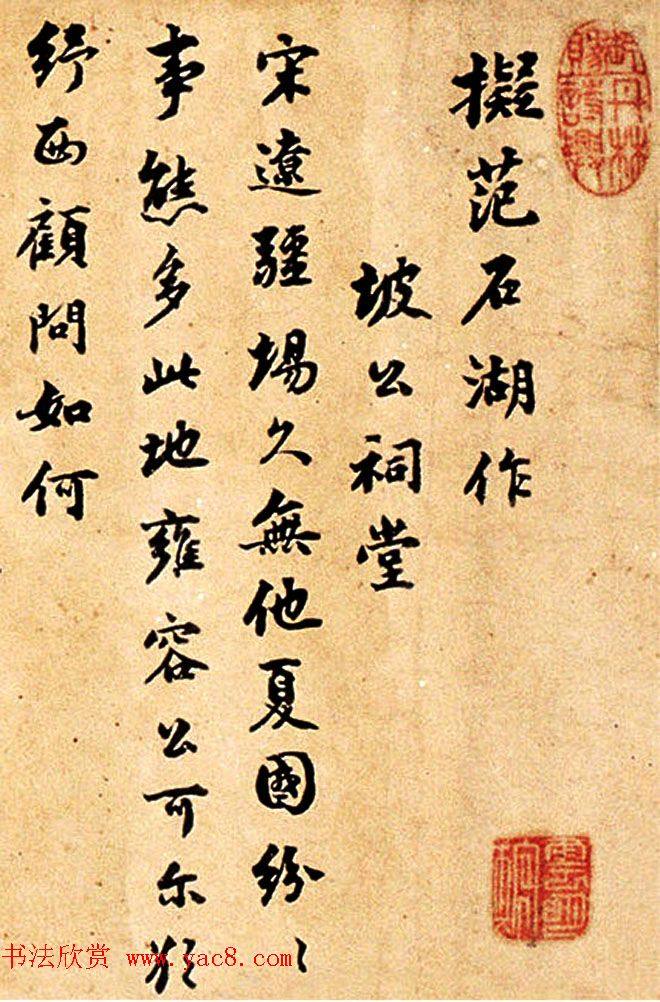 擬范石湖作
坡公祠堂
宋遼疆場久無他夏國紛〻
事態多此地雍容公可尔欲
紓西顧問如何
书法欣赏 www.yac8.com